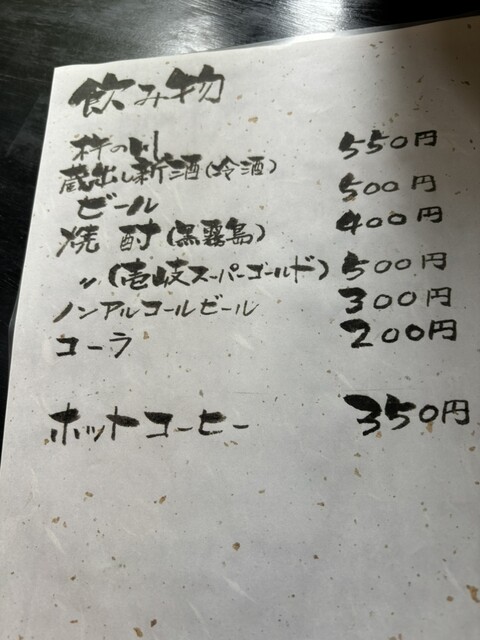 飲み物
杵の川 550円
蔵出し新酒(冷酒)
ビール 500円
焼酎(黒霧島) 400円
〃(壱岐スーパーゴールド) 500円
ノンアルコールビール 300円
コーラ 200円
ホットコーヒー 350円